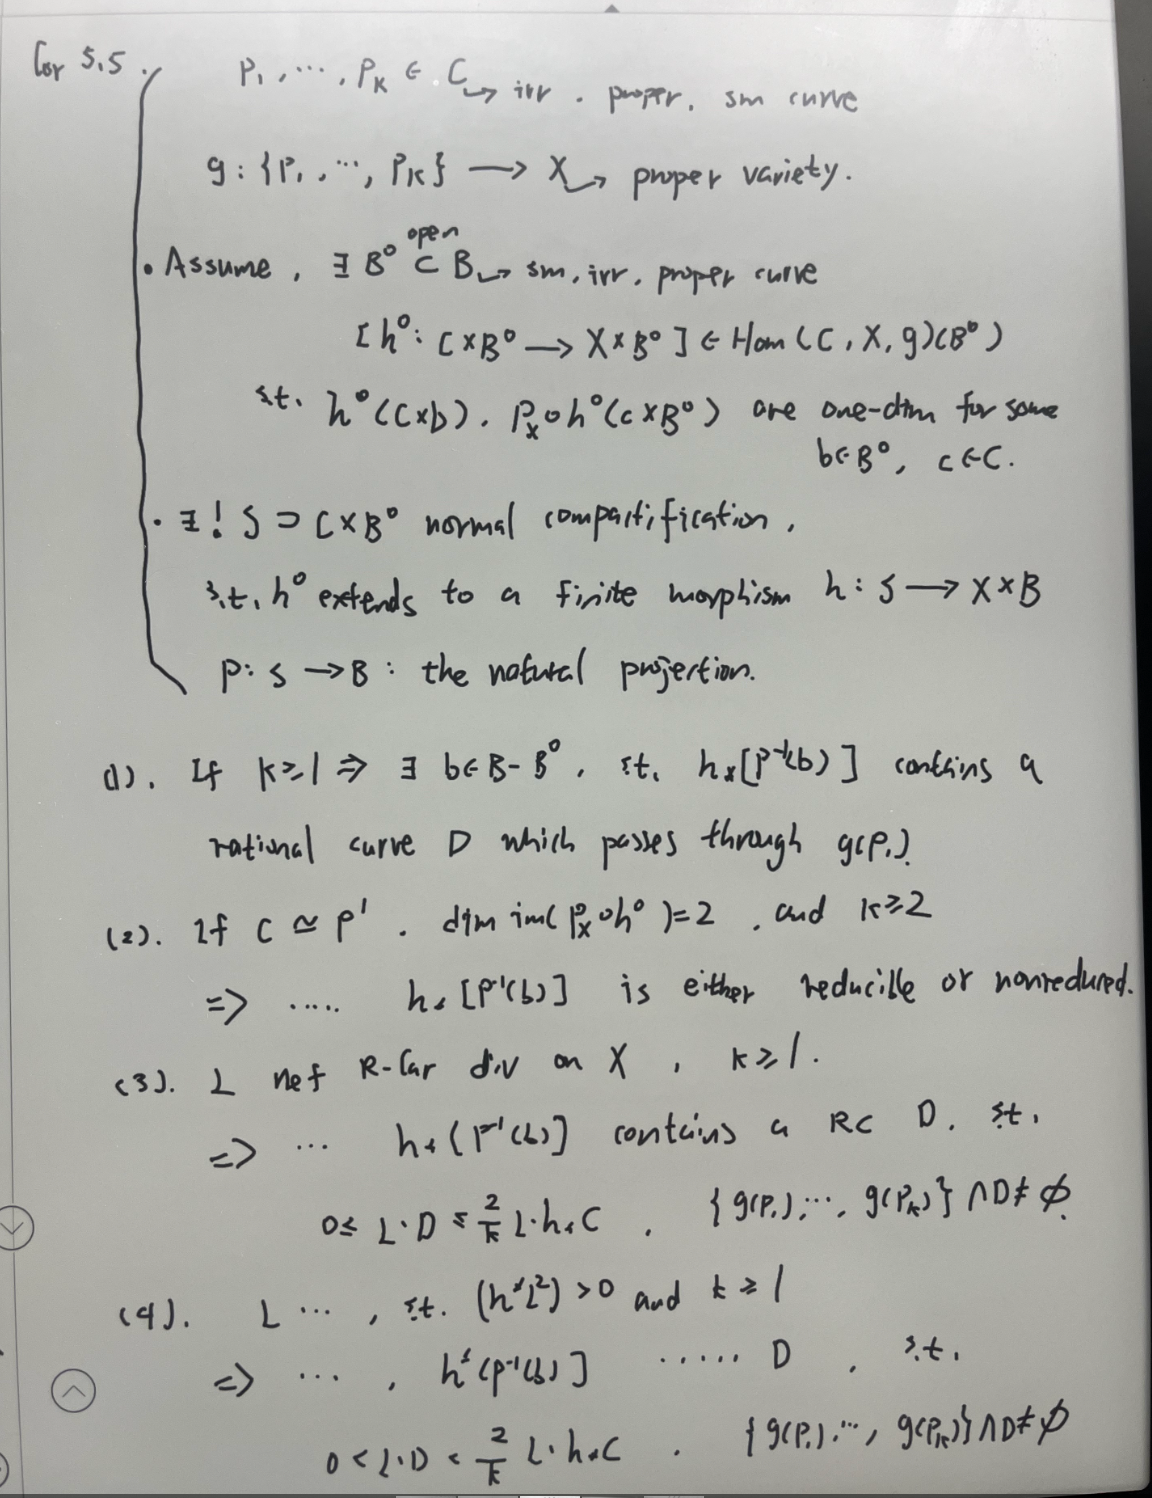 Cor 5.5.
P₁, ⋯, Pₖ ∈ C ↪ irr. proper. sm curve
g : {P₁, ⋯, Pₖ} → X ↪ proper variety.
• Assume, ∃ B° ⊂ B ↪ sm, irr, proper curve
open
[h° : C×B° → X×B°] ∈ Hom(C, X, g)(B°)
s.t. h°(C×b). Pₓ∘h°(c×B°) are one-dim for some
b∈B°, c∈C.
• ∃! S ⊃ C×B° normal compactification,
s.t. h° extends to a finite morphism h : S → X×B
p : S → B : the natural projection.
(1). If k≥1 ⇒ ∃ b∈B-B°, st. h⁎[p⁻¹(b)] contains a
rational curve D which passes through g(P₁).
(2). If C ≃ P¹. dim im(Pₓ∘h°)=2, and k≥2
⇒ ..... h⁎[p⁻¹(b)] is either reducible or nonreduced.
(3). L nef R-Car div on X, k≥1.
⇒ ... h⁎[p⁻¹(b)] contains a RC D. st.
0≤ L·D ≤ 2/k L·h⁎C, {g(P₁),⋯, g(Pₖ)}∩D≠∅.
(4). L ⋯, s.t. (h*L²)>0 and k≥1
⇒ ⋯, h*[p⁻¹(b)] ..... D, s.t.
0 < L·D < 2/k L·h⁎C. {g(P₁).⋯, g(Pₖ)}∩D≠∅